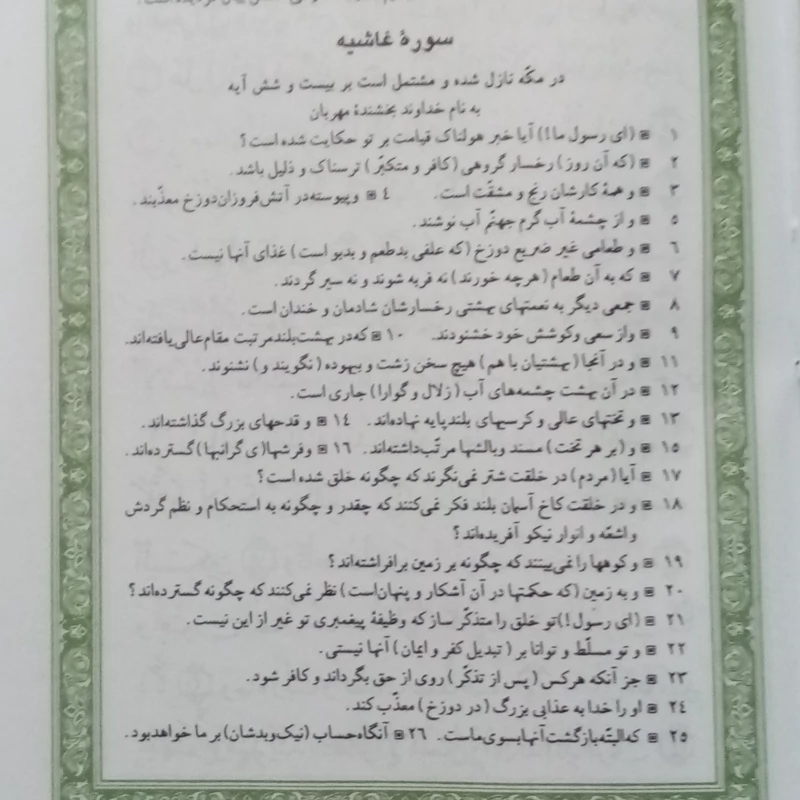 سورهٔ غاشیه
در مکّه نازل شده و مشتمل است بر بیست و شش آیه
به نام خداوند بخشندهٔ مهربان
۱ (ای رسول ما!) آیا خبر هولناک قیامت بر تو حکایت شده است؟
۲ (که آن روز) رخسار گروهی (کافر و متکبّر) ترسناک و ذلیل باشد.
۳ و همهٔ کارشان رنج و مشقّت است. ۴ و پیوسته در آتش فروزان دوزخ معذّبند.
۵ و از چشمهٔ آب گرم جهنّم آب نوشند.
۶ و طعامی غیر ضریع دوزخ (که علفی بدطعم و بدبو است) غذای آنها نیست.
۷ که به آن طعام (هرچه خورند) نه فربه شوند و نه سیر گردند.
۸ جمعی دیگر به نعمتهای بهشتی رخسارشان شادمان و خندان است.
۹ و از سعی و کوشش خود خشنودند. ۱۰ که در بهشت بلند مرتبت مقام عالی یافته‌اند.
۱۱ و در آنجا (بهشتیان با هم) هیچ سخن زشت و بیهوده (نگویند و) نشنوند.
۱۲ در آن بهشت چشمه‌های آب (زلال و گوارا) جاری است.
۱۳ و تختهای عالی و کرسیهای بلندپایه نهاده‌اند. ۱۴ و قدحهای بزرگ گذاشته‌اند.
۱۵ و (بر هر تخت) مسند و بالشها مرتّب داشته‌اند. ۱۶ و فرشها(ی گرانبها) گسترده‌اند.
۱۷ آیا (مردم) در خلقت شتر نمی‌نگرند که چگونه خلق شده است؟
۱۸ و در خلقت کاخ آسمان بلند فکر نمی‌کنند که چقدر و چگونه به استحکام و نظم گردش
و اشعّه و انوار نیکو آفریده‌اند؟
۱۹ و کوهها را نمی‌بینند که چگونه بر زمین برافراشته‌اند؟
۲۰ و به زمین (که حکمتها در آن آشکار و پنهان است) نظر نمی‌کنند که چگونه گسترده‌اند؟
۲۱ (ای رسول!) تو خلق را متذکّر ساز که وظیفهٔ پیغمبری تو غیر از این نیست.
۲۲ و تو مسلّط و توانا بر (تبدیل کفر و ایمان) آنها نیستی.
۲۳ جز آنکه هرکس (پس از تذکّر) روی از حق بگرداند و کافر شود.
۲۴ او را خدا به عذابی بزرگ (در دوزخ) معذّب کند.
۲۵ که البتّه بازگشت آنها بسوی ماست. ۲۶ آنگاه حساب (نیک و بدشان) بر ما خواهد بود.